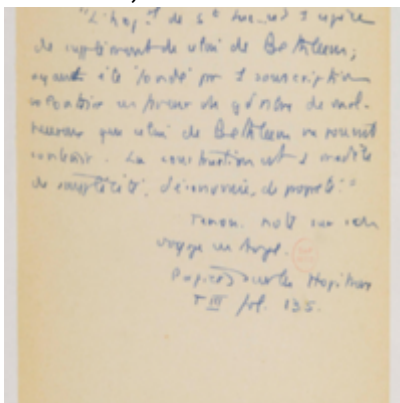 "L'hôp.l de St Luc est 1 espèce
de supplément de celui de Bethleem;
ayant été fondé par 1 souscription
de celui de Bethleem ne pouvait
contenir. La construction est 1 modèle
de simplicité, d'économie, de propreté."
Tenon. Note sur son
voyage en Angl.
Papiers sur les Hôpitaux
T III fol. 135.